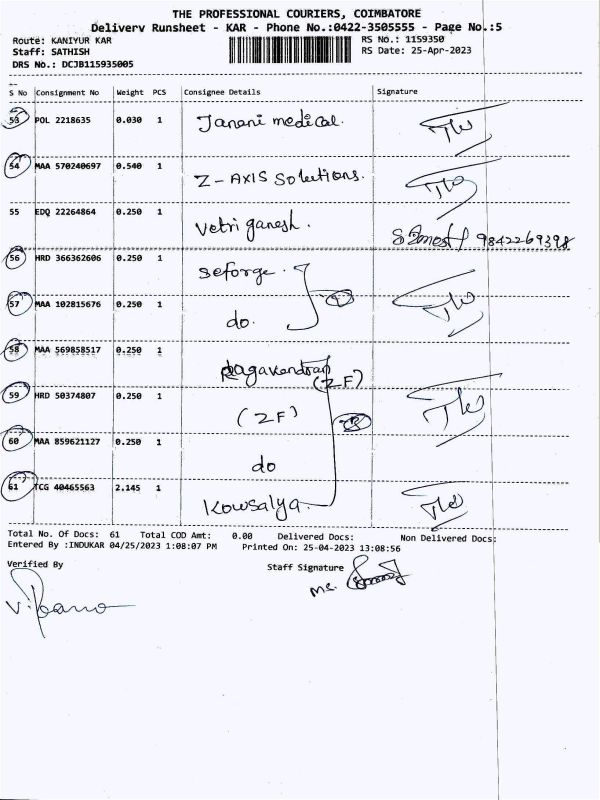 THE PROFESSIONAL COURIERS, COIMBATORE
Delivery Runsheet - KAR - Phone No.:0422-3505555 - Page No.:5
Route: KANIYUR KAR RS No.: 1159350
Staff: SATHISH RS Date: 25-Apr-2023
DRS No.: DCJB115935005
S No Consignment No Weight PCS Consignee Details Signature
53 POL 2218635 0.030 1 Janani medical.
54 MAA 570240697 0.540 1 Z-AXIS Solutions.
55 EDQ 22264864 0.250 1 Vetri ganesh. 9842269398
56 HRD 366362606 0.250 1 seforge.
57 MAA 102815676 0.250 1 do.
58 MAA 569858517 0.250 1 Ragavendran (ZF)
59 HRD 50374807 0.250 1 (ZF)
60 MAA 859621127 0.250 1 do
61 TCG 40465563 2.145 1 Kowsalya.
Total No. Of Docs: 61 Total COD Amt: 0.00 Delivered Docs: Non Delivered Docs:
Entered By :INDUKAR 04/25/2023 1:08:07 PM Printed On: 25-04-2023 13:08:56
Verified By Staff Signature